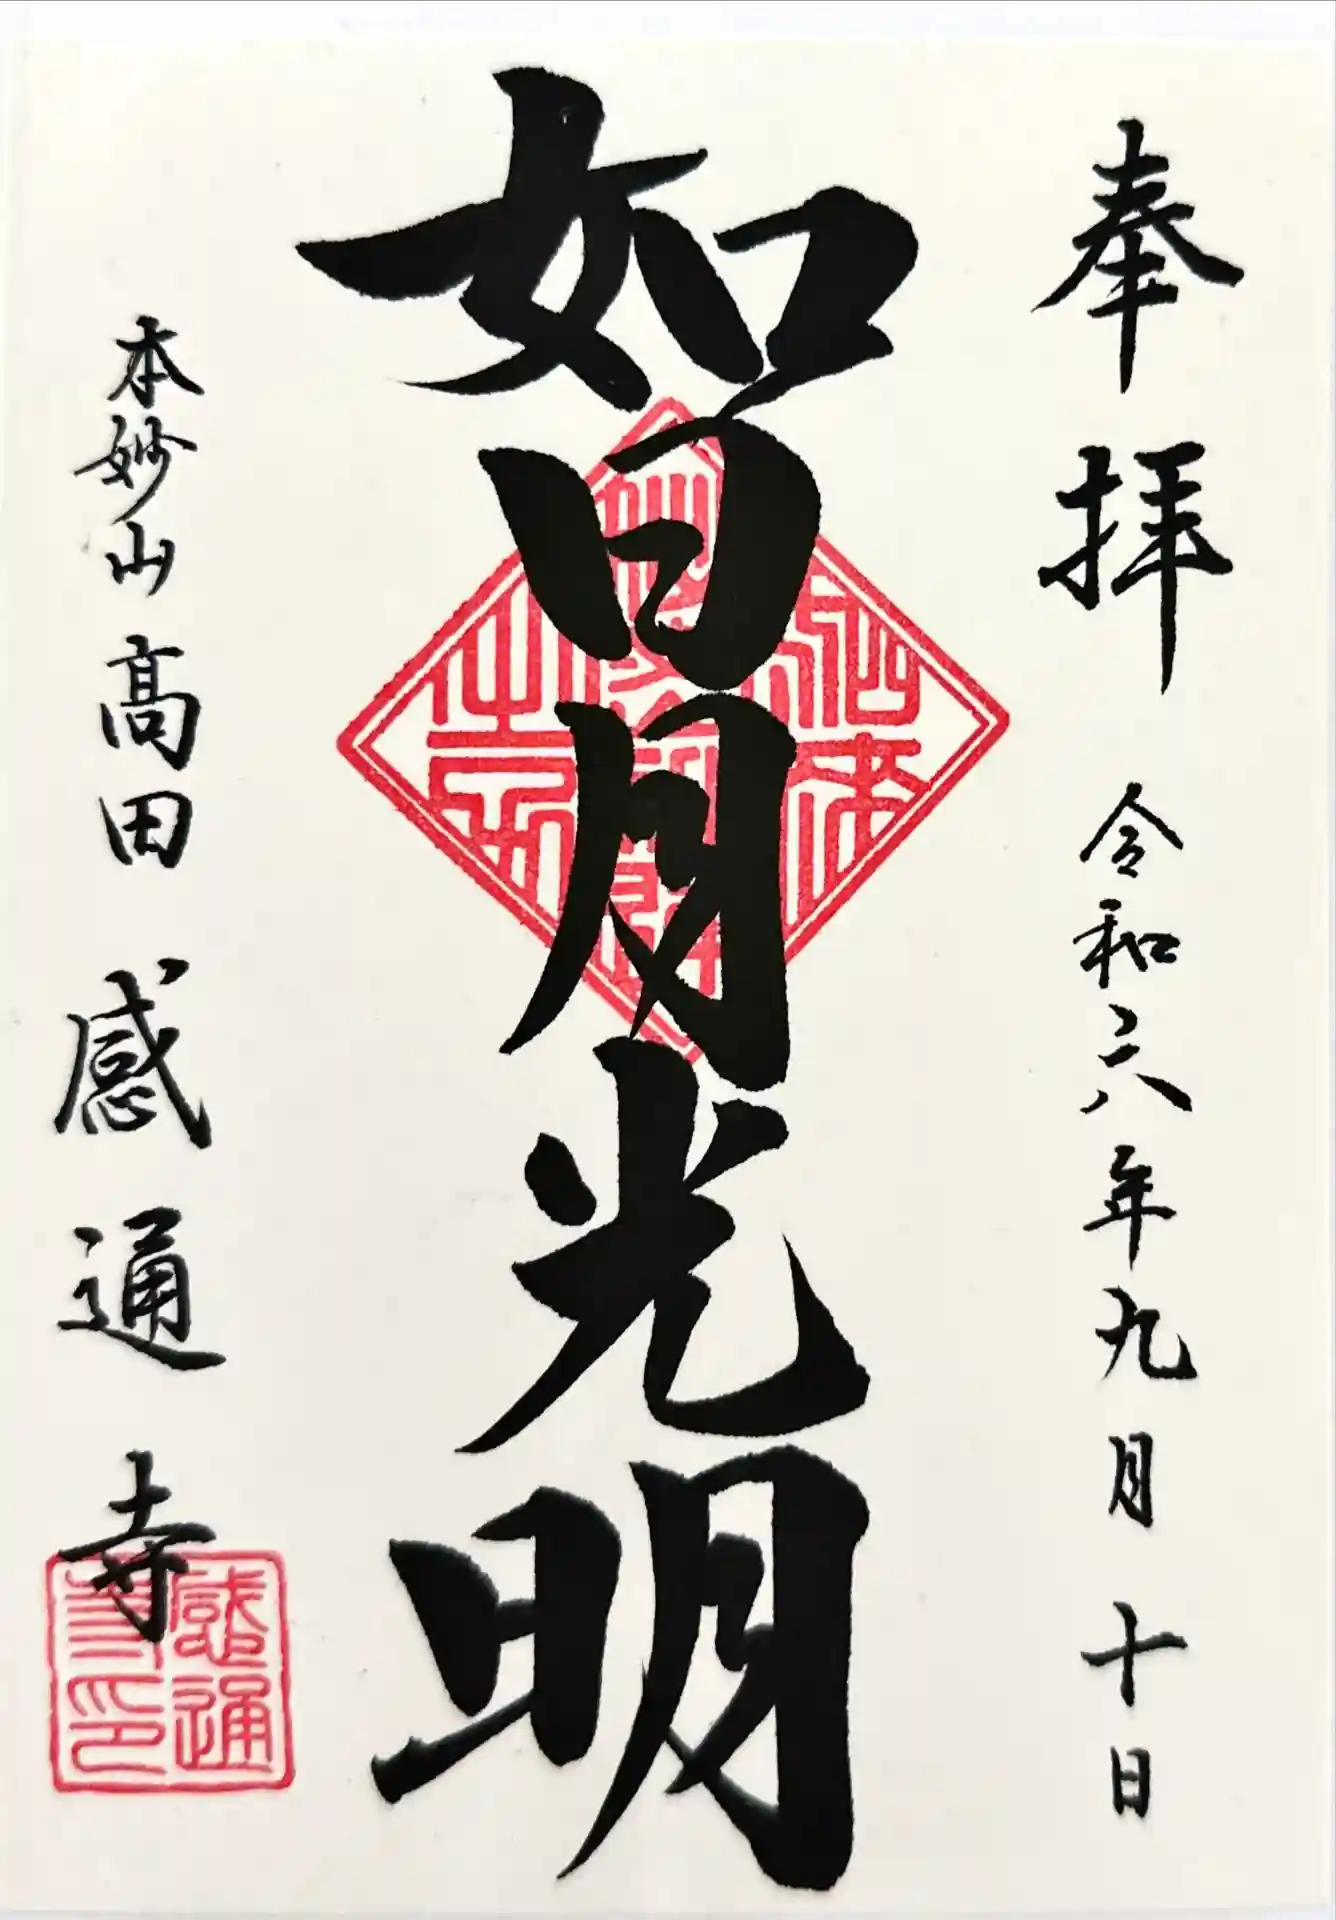 奉拝 令和六年九月十日
如日月光明
本妙山 高田 感通寺
感通
寺印